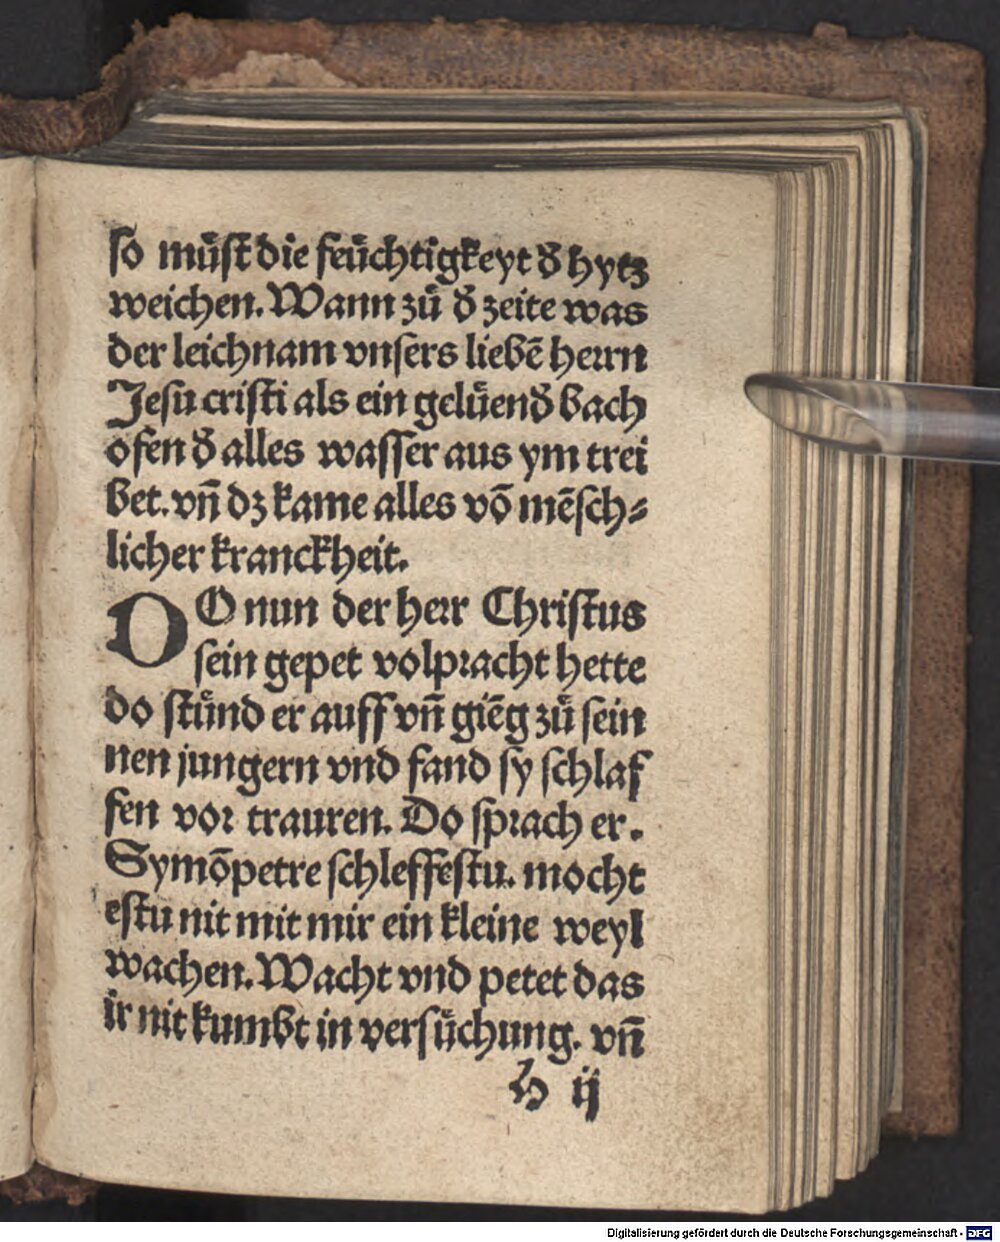 so můſt die feüchtigkeyt ð hytz
weichen. Wann zů ð zeite was
der leichnam vnſers liebē herrn
Jeſu criſti als ein gelüend bach
ofen ð alles waſſer aus ym trei
bet. vn̄ dz kame alles vō mēſch⸗
licher kranckheit.
DO nun der herr Chriſtus
ſein gepet volpꝛacht hette
do ſtůnd er auff vn̄ giēg zů ſein
nen jungern vnd fand ſy ſchlaf
fen voꝛ trauren. Do ſpꝛach er.
Symōpetre ſchleffeſtu. mocht
eſtu nit mit mir ein kleine weyl
wachen. Wacht vnd petet das
ir nit kumbt in verſůchung. vn̄
h ij
Digitalisierung gefördert durch die Deutsche Forschungsgemeinschaft - DFG